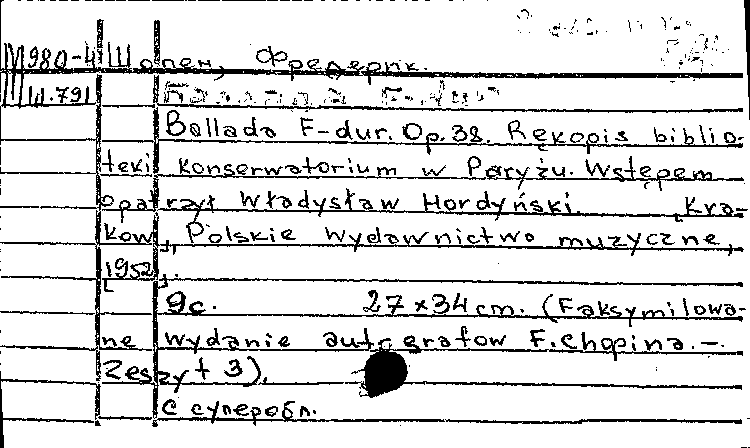 М980-4 Шопен, Фредерик.
Ш.791 Баллада F-dur
Ballada F-dur. Op. 38. Rękopis biblio-
teki konserwatorium w Paryżu. Wstępem
opatrzył Władysław Hordyński. [Kra-
kow], Polskie wydawnictwo muzyczne,
[1952].
9с. 27×34 cm. (Faksymilowa-
ne wydanie autografow F. Chopina. –
Zeszyt 3).
С суперобл.